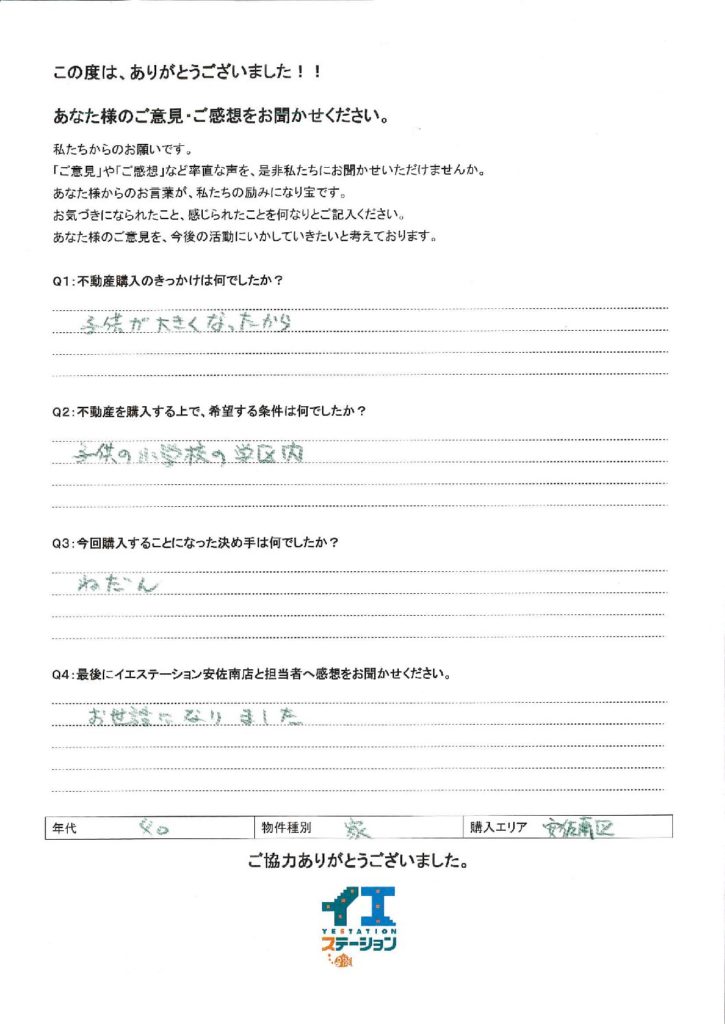 この度は、ありがとうございました！！
あなた様のご意見・ご感想をお聞かせください。
私たちからのお願いです。
「ご意見」や「ご感想」など率直な声を、是非私たちにお聞かせいただけませんか。
あなた様からのお言葉が、私たちの励みになり宝です。
お気づきになられたこと、感じられたことを何なりとご記入ください。
あなた様のご意見を、今後の活動にいかしていきたいと考えております。
Q1：不動産購入のきっかけは何でしたか？
子供が大きくなったから
Q2：不動産を購入する上で、希望する条件は何でしたか？
子供の小学校の学区内
Q3：今回購入することになった決め手は何でしたか？
ねだん
Q4：最後にイエステーション安佐南店と担当者へ感想をお聞かせください。
お世話になりました
年代 40 物件種別 家 購入エリア 安佐南区
ご協力ありがとうございました。
イエ
YESTATION
ステーション